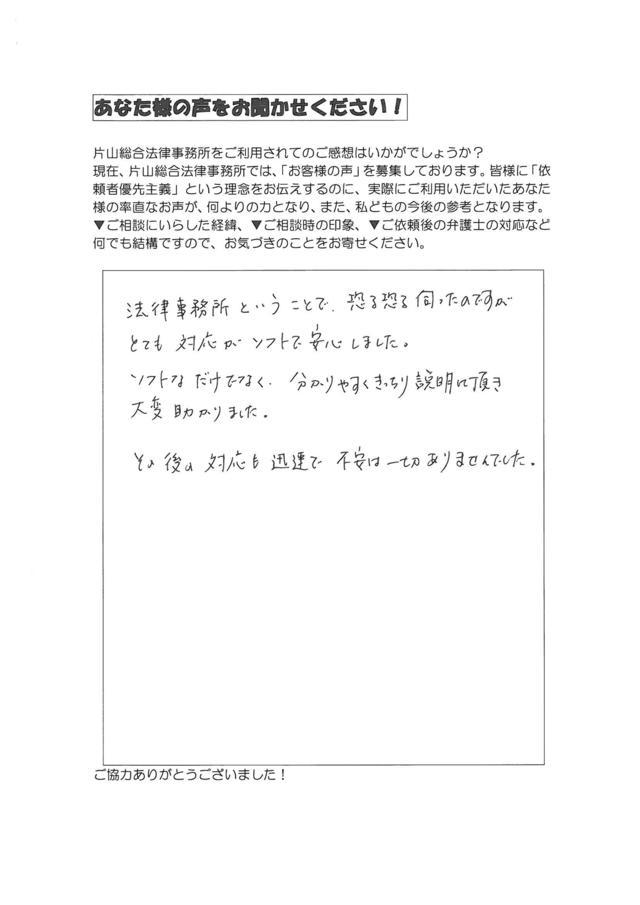 あなた様の声をお聞かせください！
片山総合法律事務所をご利用されてのご感想はいかがでしょうか？
現在、片山総合法律事務所では、「お客様の声」を募集しております。皆様に「依
頼者優先主義」という理念をお伝えするのに、実際にご利用いただいたあなた
様の率直なお声が、何よりの力となり、また、私どもの今後の参考となります。
▼ご相談にいらした経緯、▼ご相談時の印象、▼ご依頼後の弁護士の対応など
何でも結構ですので、お気づきのことをお寄せください。
法律事務所ということで、恐る恐る伺ったのですが
とても対応がソフトで安心しました。
ソフトなだけでなく、分かりやすくきっちり説明し頂き
大変助かりました。
その後の対応も迅速で不安は一切ありませんでした。
ご協力ありがとうございました！